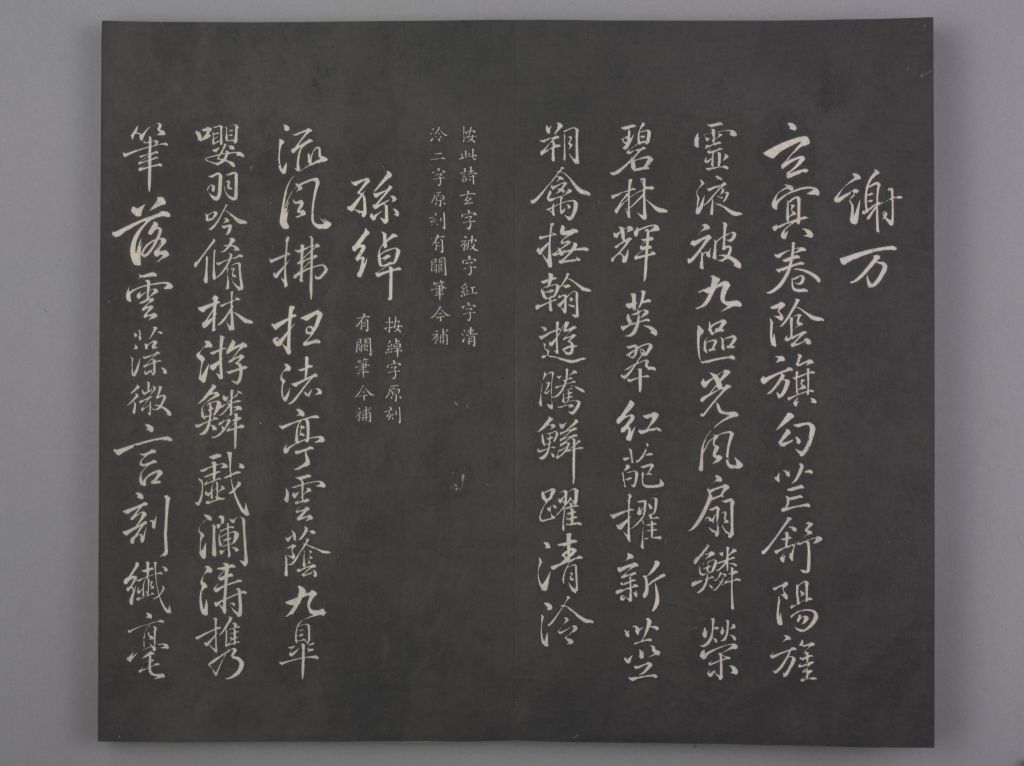 謝万
玄冥卷陰旗勾芒舒陽旌
靈液被九區光風扇鱗榮
碧林輝英翠紅葩擢新莖
翔禽撫翰遊騰鱗躍清泠
按此詩玄字被字紅字清
泠二字原刻有闕筆今補
孫綽
按綽字原刻
有闕筆今補
流風拂枉渚亭雲蔭九皐
嚶羽吟脩林游鱗戲瀾濤携
筆落雲藻微言剖纖毫